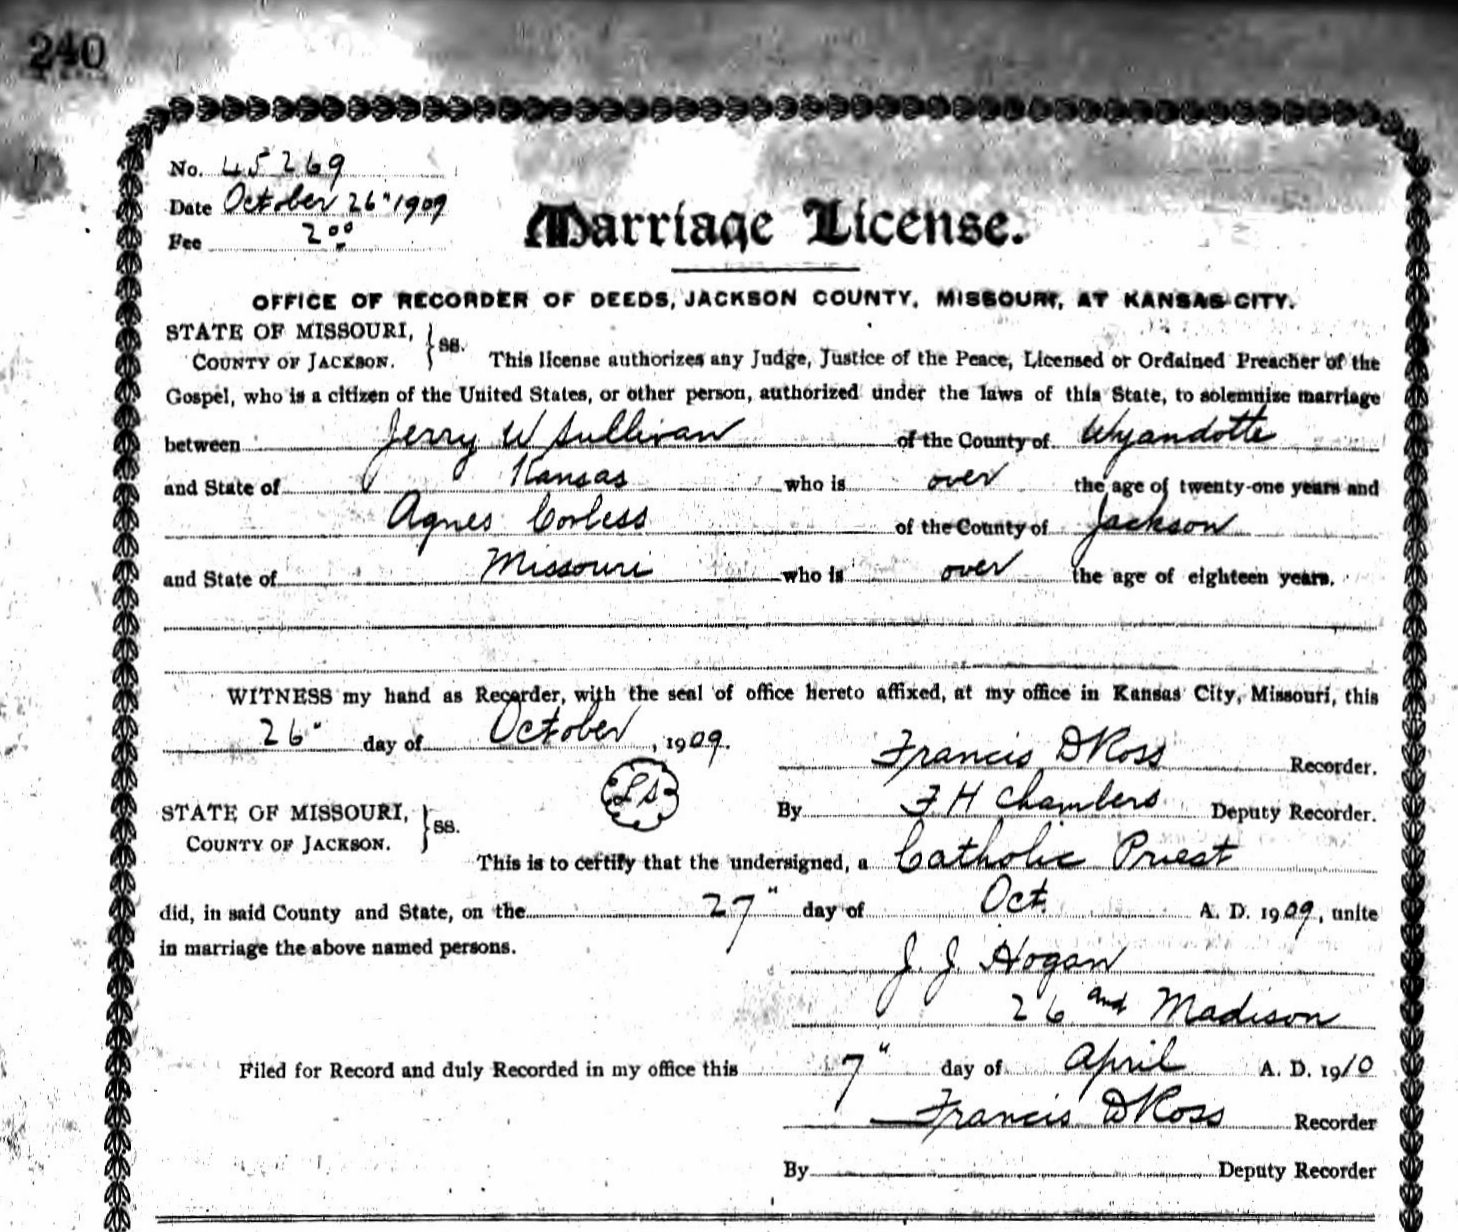 240
No. 45269
Date October 26" 1909
Fee 2.00
Marriage License.
OFFICE OF RECORDER OF DEEDS, JACKSON COUNTY, MISSOURI, AT KANSAS CITY.
STATE OF MISSOURI,
COUNTY OF JACKSON. } ss.
This license authorizes any Judge, Justice of the Peace, Licensed or Ordained Preacher of the
Gospel, who is a citizen of the United States, or other person, authorized under the laws of this State, to solemnize marriage
between Jerry W Sullivan of the County of Wyandotte
and State of Kansas who is over the age of twenty-one years and
Agnes Corless of the County of Jackson
and State of Missouri who is over the age of eighteen years.
WITNESS my hand as Recorder, with the seal of office hereto affixed, at my office in Kansas City, Missouri, this
26" day of October, 1909.
Francis D Ross Recorder.
LS
By F. H Chambers Deputy Recorder.
STATE OF MISSOURI,
COUNTY OF JACKSON. } ss.
This is to certify that the undersigned, a Catholic Priest
did, in said County and State, on the 27" day of Oct. A. D. 1909, unite
in marriage the above named persons.
J. J. Hogan
26 and Madison
Filed for Record and duly Recorded in my office this 7" day of April A. D. 1910
Francis D Ross Recorder
By Deputy Recorder